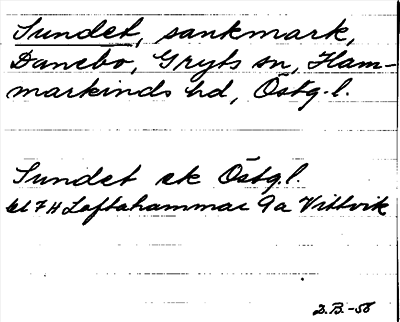 Sundet, sankmark,
Danebo, Gryts sn, Ham-
markinds hd, Östg.l.
Sundet ek Östgl.
bl 7 H Loftahammar 9a Vittvik
D.B.-56